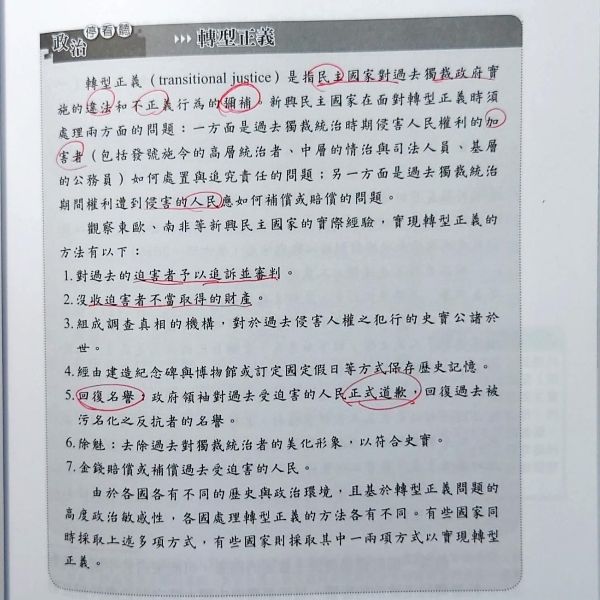 政治
停看聽
轉型正義
轉型正義（transitional justice）是指民主國家對過去獨裁政府實
施的違法和不正義行為的彌補。新興民主國家在面對轉型正義時須
處理兩方面的問題：一方面是過去獨裁統治時期侵害人民權利的加
害者（包括發號施令的高層統治者、中層的情治與司法人員、基層
的公務員）如何處置與追究責任的問題；另一方面是過去獨裁統治
期間權利遭到侵害的人民應如何補償或賠償的問題。
觀察東歐、南非等新興民主國家的實際經驗，實現轉型正義的
方法有以下：
1.對過去的迫害者予以追訴並審判。
2.沒收迫害者不當取得的財產。
3.組成調查真相的機構，對於過去侵害人權之犯行的史實公諸於
世。
4.經由建造紀念碑與博物館或訂定國定假日等方式保存歷史記憶。
5.回復名譽：政府領袖對過去受迫害的人民正式道歉，回復過去被
污名化之反抗者的名譽。
6.除魅：去除過去對獨裁統治者的美化形象，以符合史實。
7.金錢賠償或補償過去受迫害的人民。
由於各國各有不同的歷史與政治環境，且基於轉型正義問題的
高度政治敏感性，各國處理轉型正義的方法各有不同。有些國家同
時採取上述多項方式，有些國家則採取其中一兩項方式以實現轉型
正義。